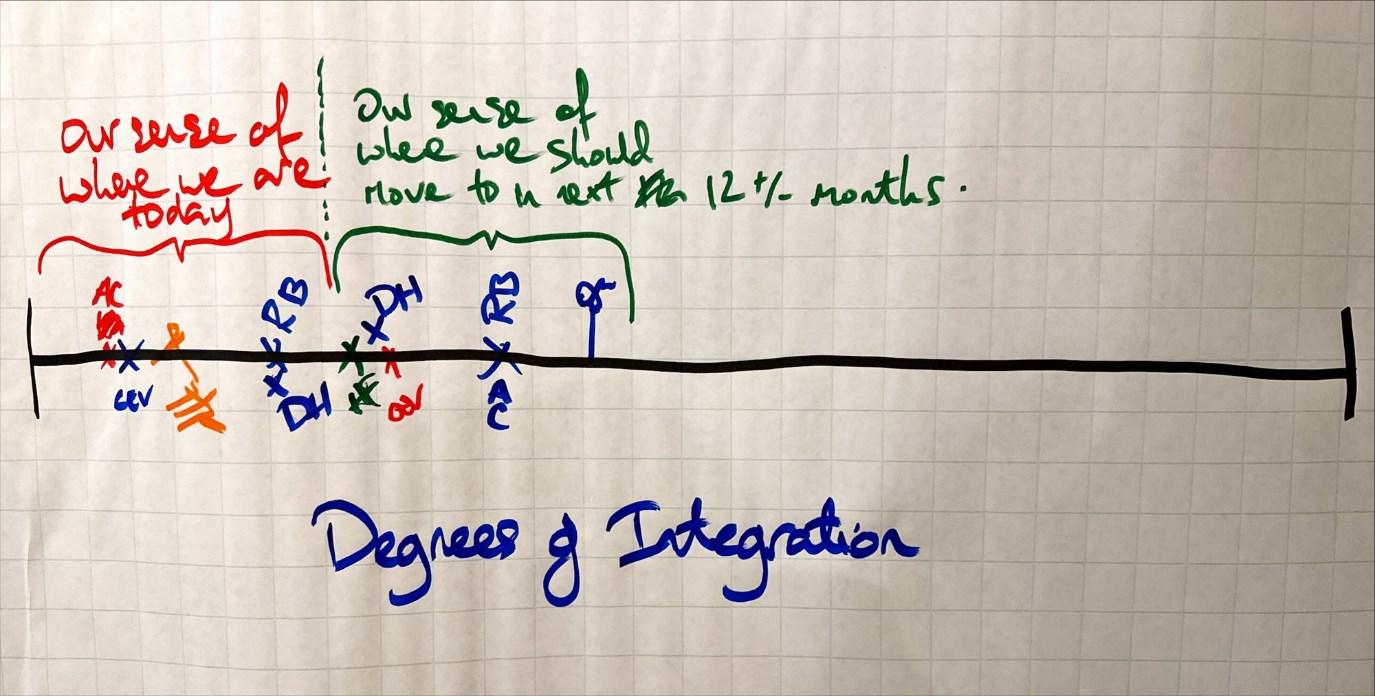 Our sense of
where we are
today
Our sense of
where we should
move to in next 12 +/- months.
AC
RB
DH
RB
DH
AC
Degrees of Integration